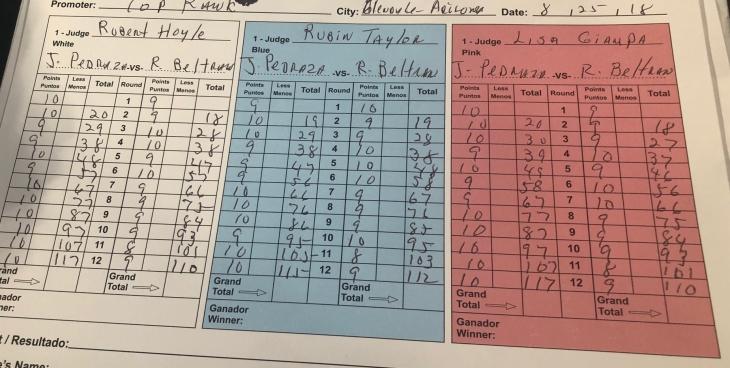 Promoter: TOP RANK City: Glendale Arizona Date: 8,25,18
1 - Judge Robert Hoyle
White
J. PEDRAZA -vs- R. Beltran
Points Puntos Less Menos Total Round Points Puntos Less Menos Total
10 1 9
10 20 2 9 18
9 29 3 10 28
9 38 4 10 38
10 48 5 9 47
9 57 6 10 57
10 67 7 9 66
10 77 8 9 75
10 87 9 9 84
10 97 10 9 93
10 107 11 8 101
10 117 12 9 110
Grand Total
1 - Judge Rubin Taylor
Blue
J. PEDRAZA -vs- R. Beltran
Points Puntos Less Menos Total Round Points Puntos Less Menos Total
9 1 10
10 19 2 9 19
10 29 3 9 28
9 38 4 10 38
9 47 5 10 48
9 56 6 10 58
10 66 7 9 67
10 76 8 9 76
10 86 9 9 85
9 95 10 10 95
10 105 11 8 103
10 115 12 9 112
Grand Total Grand Total
Ganador
Winner:
1 - Judge LISA GIAMPA
Pink
J. PEDRAZA -vs- R. Beltran
Points Puntos Less Menos Total Round Points Puntos Less Menos Total
10 1 9
10 20 2 9 18
10 30 3 9 27
9 39 4 10 37
10 49 5 9 46
9 58 6 10 56
9 67 7 10 66
10 77 8 9 75
10 87 9 9 84
10 97 10 9 93
10 107 11 8 101
10 117 12 9 110
Grand Total Grand Total
Ganador
Winner:
t / Resultado:
's Name: